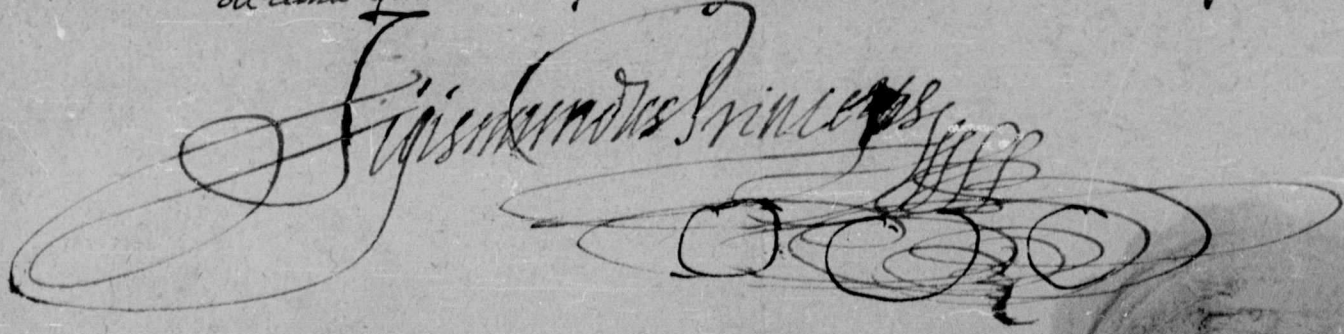 Sigismundus Princeps